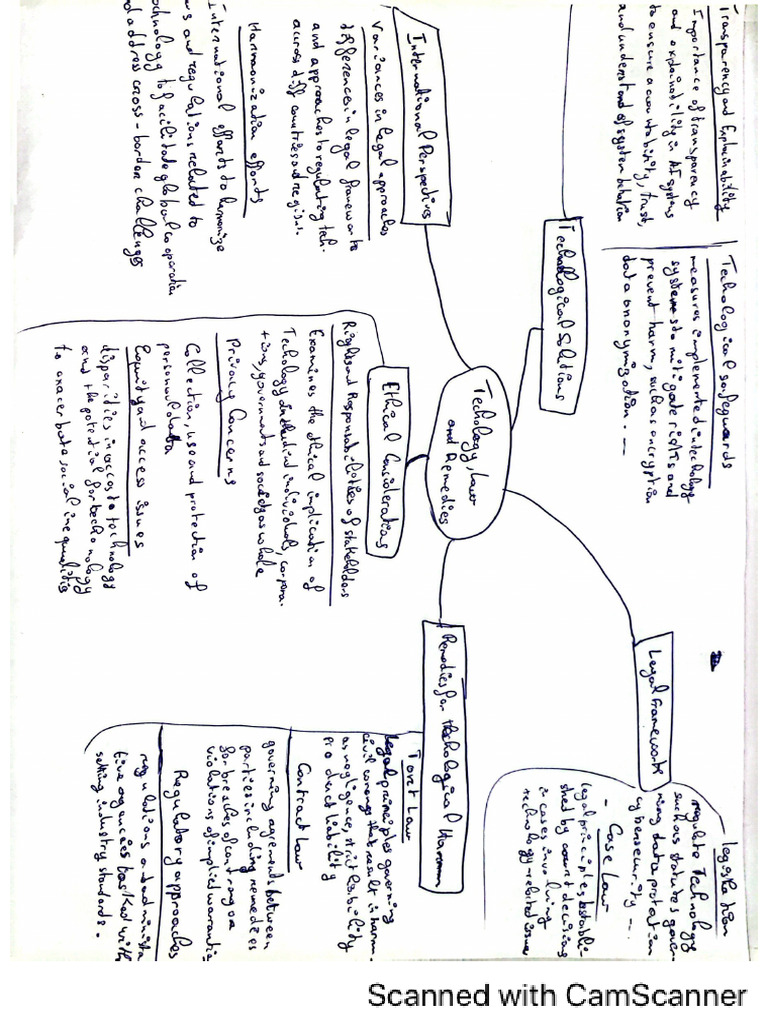 Techology, Law
and Remedies
Legal Framework
- legislation
regulate Technology
such as statutes gover-
ning data protation
cybersecurity -.
- Case Law
legal principles, establi-
shed by court decisions
in cases involving
technology-related issues
Techological Solutions
Transparency and Explainability
Importance of transparency
and explainability in AI systems
to ensure accountability, trust,
and understand of system
Techological safeguards
measures implemented in techology
systems to mitigate risks and
prevent harm, such as encryption
data anonymization. -
International Perspectives
Variances in legal approaches
differences in legal frameworks
and approaches to regulating tech.
across diff countries and regions.
Harmonization efforts
International efforts to harmonize
and regulations related to
technology to facilitate global cooperation
address cross-border challenges
Ethical Considerations
Rights and Responsabilities of stakeholders
Examines the ethical implication of
Techology individuals, corpora-
tions, governments and society as whole
Privacy Concerns
Collection, use and protection of
personal data
Equity and access issues
disparities in access to technology
and the potential for technology
to exacerbate social inequalities
Remedies for Techological Harm
Toret Law
legal principles governing
civil wrongs that result in harm-
as negligence, strict liability
product liability
Contract Law
governing agrements between
parties including remedies
for breaches of contract or
violations of implied warrantie
Regulatory approaches
regulations and administra
tive agencies tasked with
setting industry standards -
Scanned with CamScanner